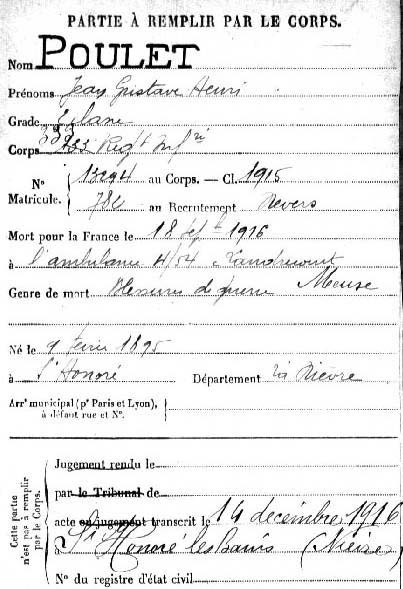 PARTIE À REMPLIR PAR LE CORPS.
Nom POULET
Prénoms Jean Gustave Henri
Grade
Corps 333 Regt Infrie
Nº Matricule. 13294 au Corps. — Cl. 1915
782 au Recrutement Nevers
Mort pour la France le 18 sept 1916
à l'ambulance 4/54 Landrecourt
Genre de mort Blessures de guerre Meuse
Né le 9 février 1895
à St Honoré Département la Nièvre
Arrt municipal (pr Paris et Lyon),
à défaut rue et Nº.
Cette partie n'est pas à remplir par le Corps.
Jugement rendu le
par le Tribunal de
acte ou jugement transcrit le 14 décembre 1916
à St Honoré les bains (Nièvre)
Nº du registre d'état civil